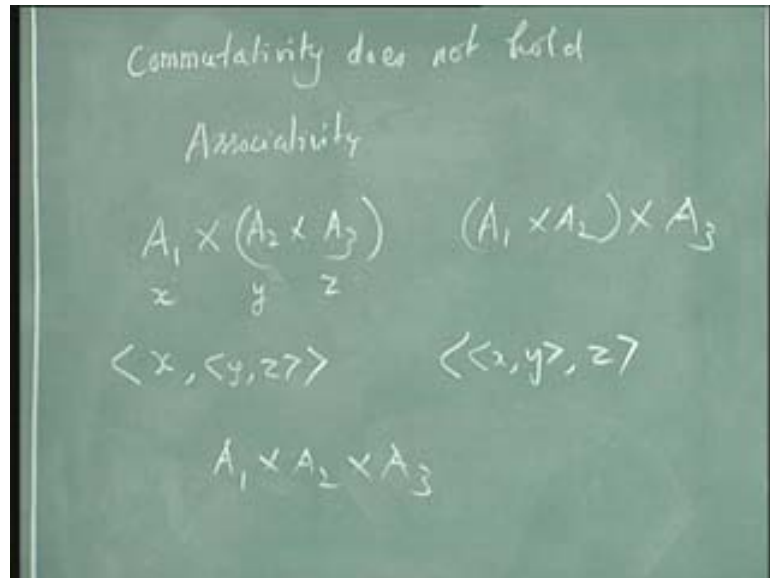 Commutativity does not hold
Associativity
A₁ × (A₂ × A₃) (A₁ × A₂) × A₃
x y z
<x, <y, z>> <<x, y>, z>
A₁ × A₂ × A₃